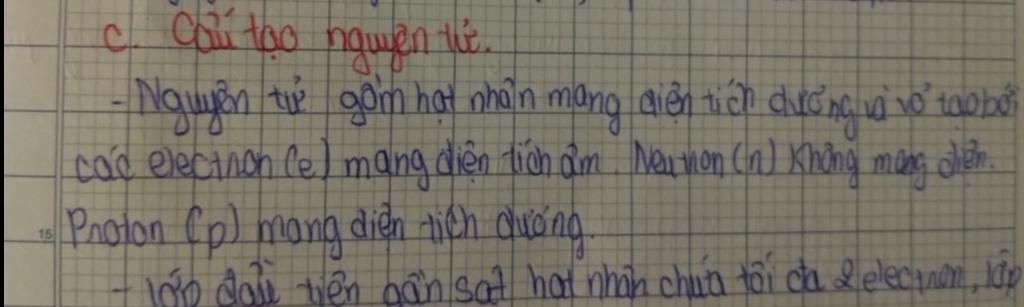 c. Cấu tạo nguyên tử.
- Nguyên tử gồm hạt nhân mang điện tích dương và vỏ tạo bởi
các electron (e) mang điện tích âm. Neutron (n) không mang điện.
15 Proton (p) mang điện tích dương.
- lớp đầu tiên gần sát hạt nhân chứa tối đa 2 electron, lớp